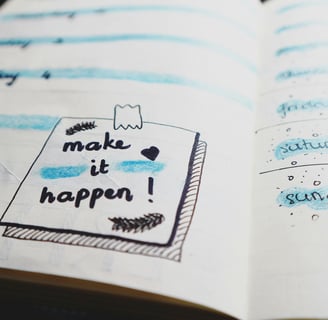 ay 4
make
it
happen !
frida
satur
sun